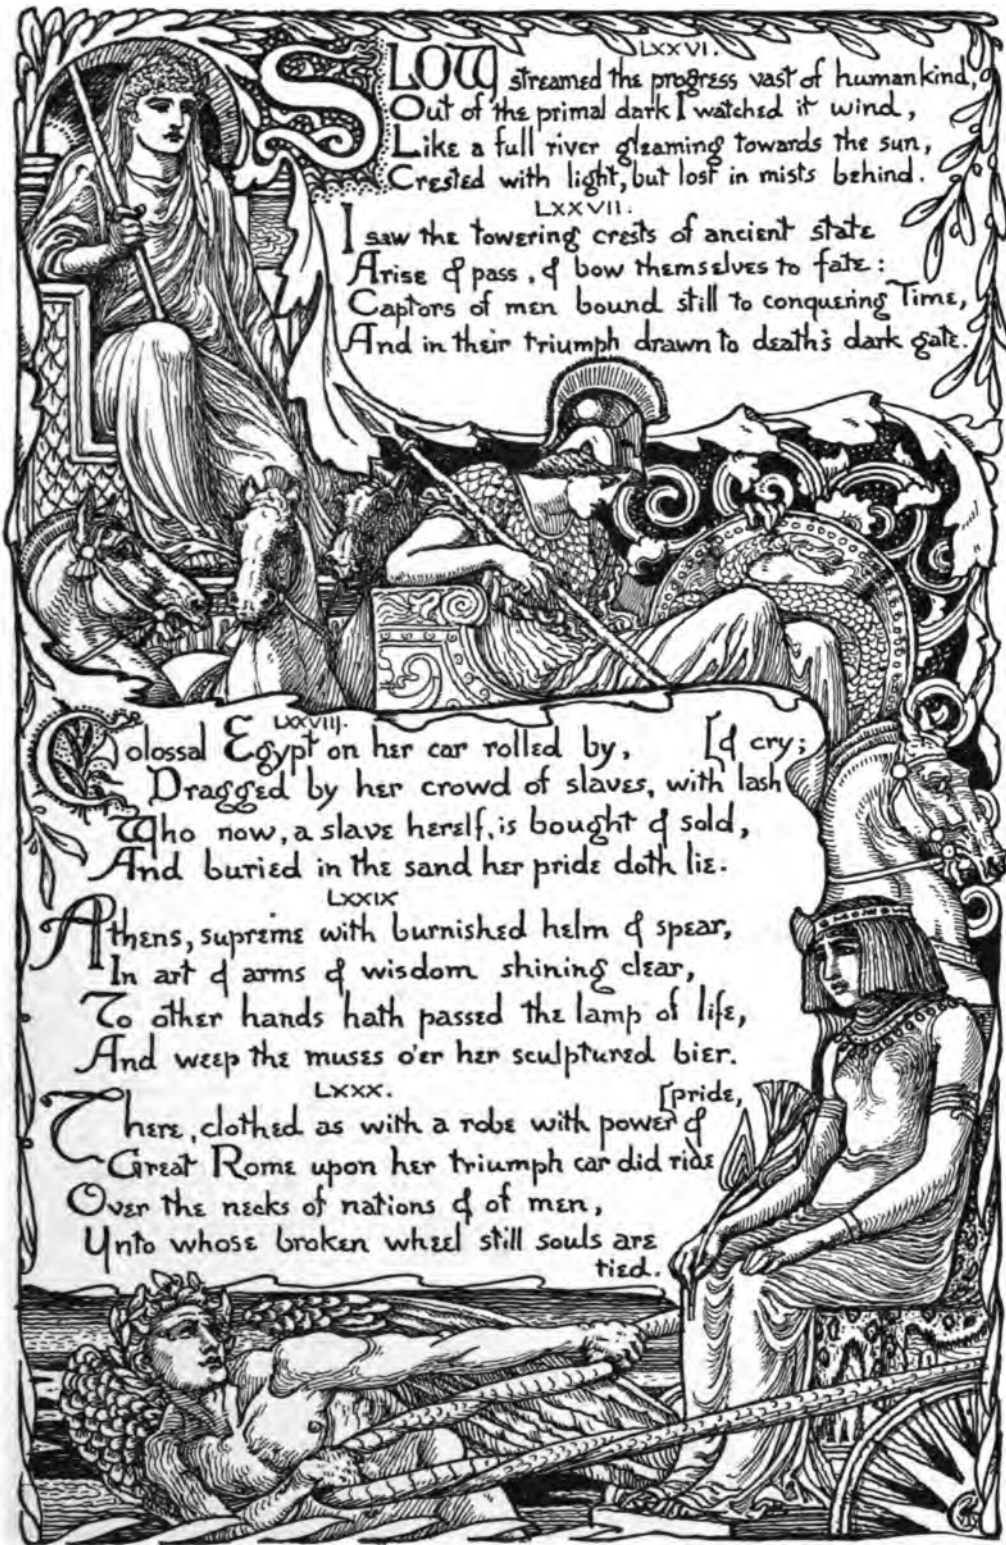 LXXVI.
SLOW streamed the progress vast of humankind,
Out of the primal dark I watched it wind,
Like a full river gleaming towards the sun,
Crested with light, but lost in mists behind.
LXXVII.
I saw the towering crests of ancient state
Arise & pass, & bow themselves to fate:
Captors of men bound still to conquering Time,
And in their triumph drawn to death's dark gate.
LXXVIII.
Colossal Egypt on her car rolled by, [& cry;
Dragged by her crowd of slaves, with lash
Who now, a slave herelf, is bought & sold,
And buried in the sand her pride doth lie.
LXXIX
Athens, supreme with burnished helm & spear,
In art & arms & wisdom shining clear,
To other hands hath passed the lamp of life,
And weep the muses o'er her sculptured bier.
LXXX. [pride,
There, clothed as with a robe with power &
Great Rome upon her triumph car did ride
Over the necks of nations & of men,
Unto whose broken wheel still souls are
tied.